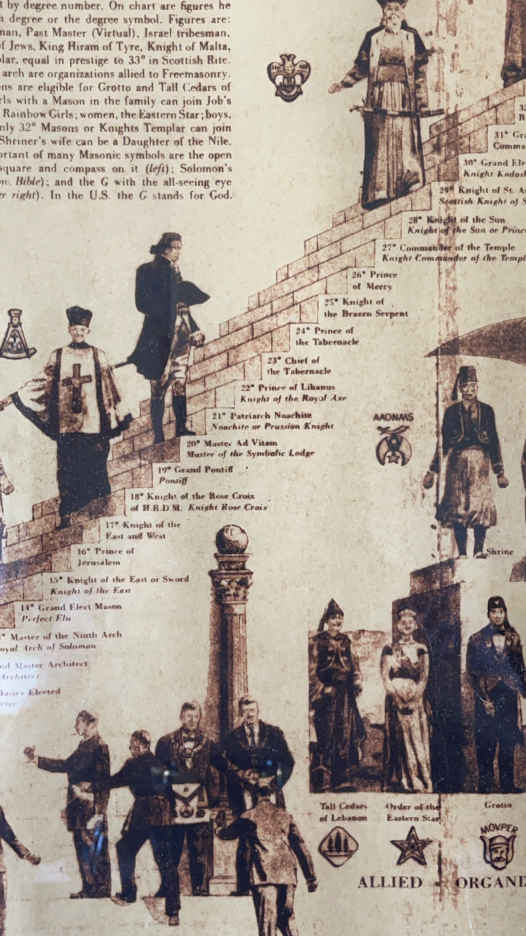 t by degree number. On chart are figures he
n degree or the degree symbol. Figures are:
man, Past Master (Virtual), Israel tribesman,
of Jews, King Hiram of Tyre, Knight of Malta,
plar, equal in prestige to 33° in Scottish Rite.
arch are organizations allied to Freemasonry.
ns are eligible for Grotto and Tall Cedars of
rls with a Mason in the family can join Job's
Rainbow Girls; women, the Eastern Star; boys,
nly 32° Masons or Knights Templar can join
Shriner's wife can be a Daughter of the Nile.
ortant of many Masonic symbols are the open
square and compass on it (left); Solomon's
Bible); and the G with the all-seeing eye
er right). In the U.S. the G stands for God.
31° Gr
Comma
30° Grand Ele
Knight Kadosh
29° Knight of St. A
Scottish Knight of S
28° Knight of the Sun
Knight of the Sun or Prince
27° Commander of the Temple
Knight Commander of the Templ
26° Prince
of Mercy
25° Knight of
the Brazen Serpent
24° Prince of
the Tabernacle
23° Chief of
the Tabernacle
22° Prince of Libanus
Knight of the Royal Axe
21° Patriarch Noachite
Noachite or Prussian Knight
20° Master Ad Vitam
Master of the Symbolic Lodge
19° Grand Pontiff
Pontiff
18° Knight of the Rose Croix
of H.R.D.M. Knight Rose Croix
17° Knight of the
East and West
16° Prince of
Jerusalem
15° Knight of the East or Sword
Knight of the East
14° Grand Elect Mason
Perfect Elu
° Master of the Ninth Arch
oyal Arch of Solomon
nd Master Architect
Architect
Master Elected
AAONMS
Shrine
Tall Cedars
of Lebanon
Order of the
Eastern Star
Grotto
MOVPER
ALLIED ORGANI